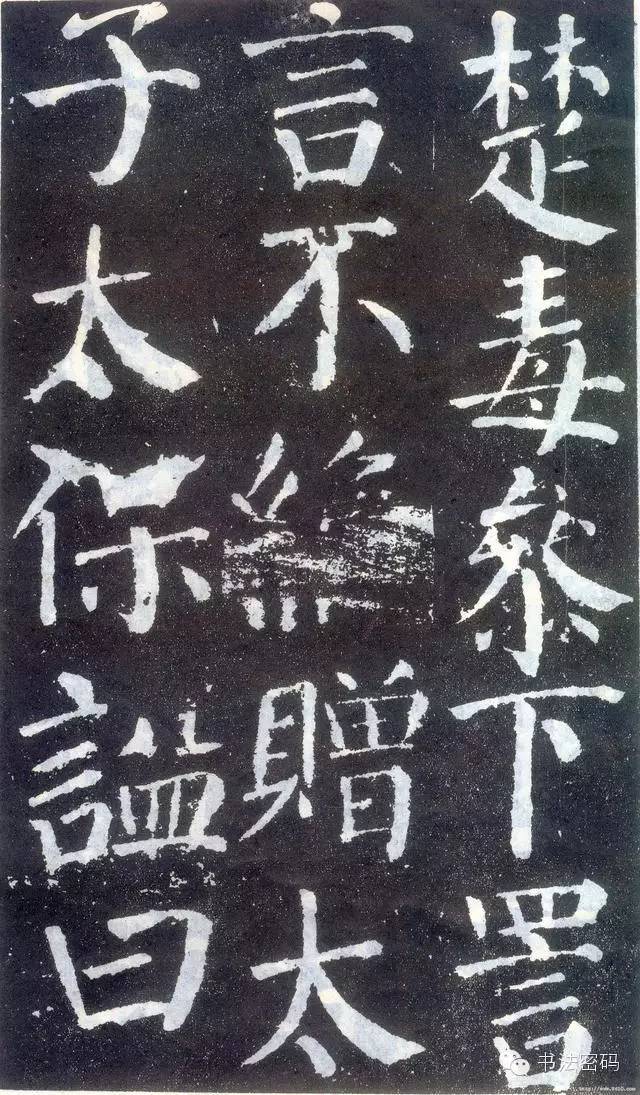 楚毒叅下詈
言不絶贈太
子太保謚曰
书法密码